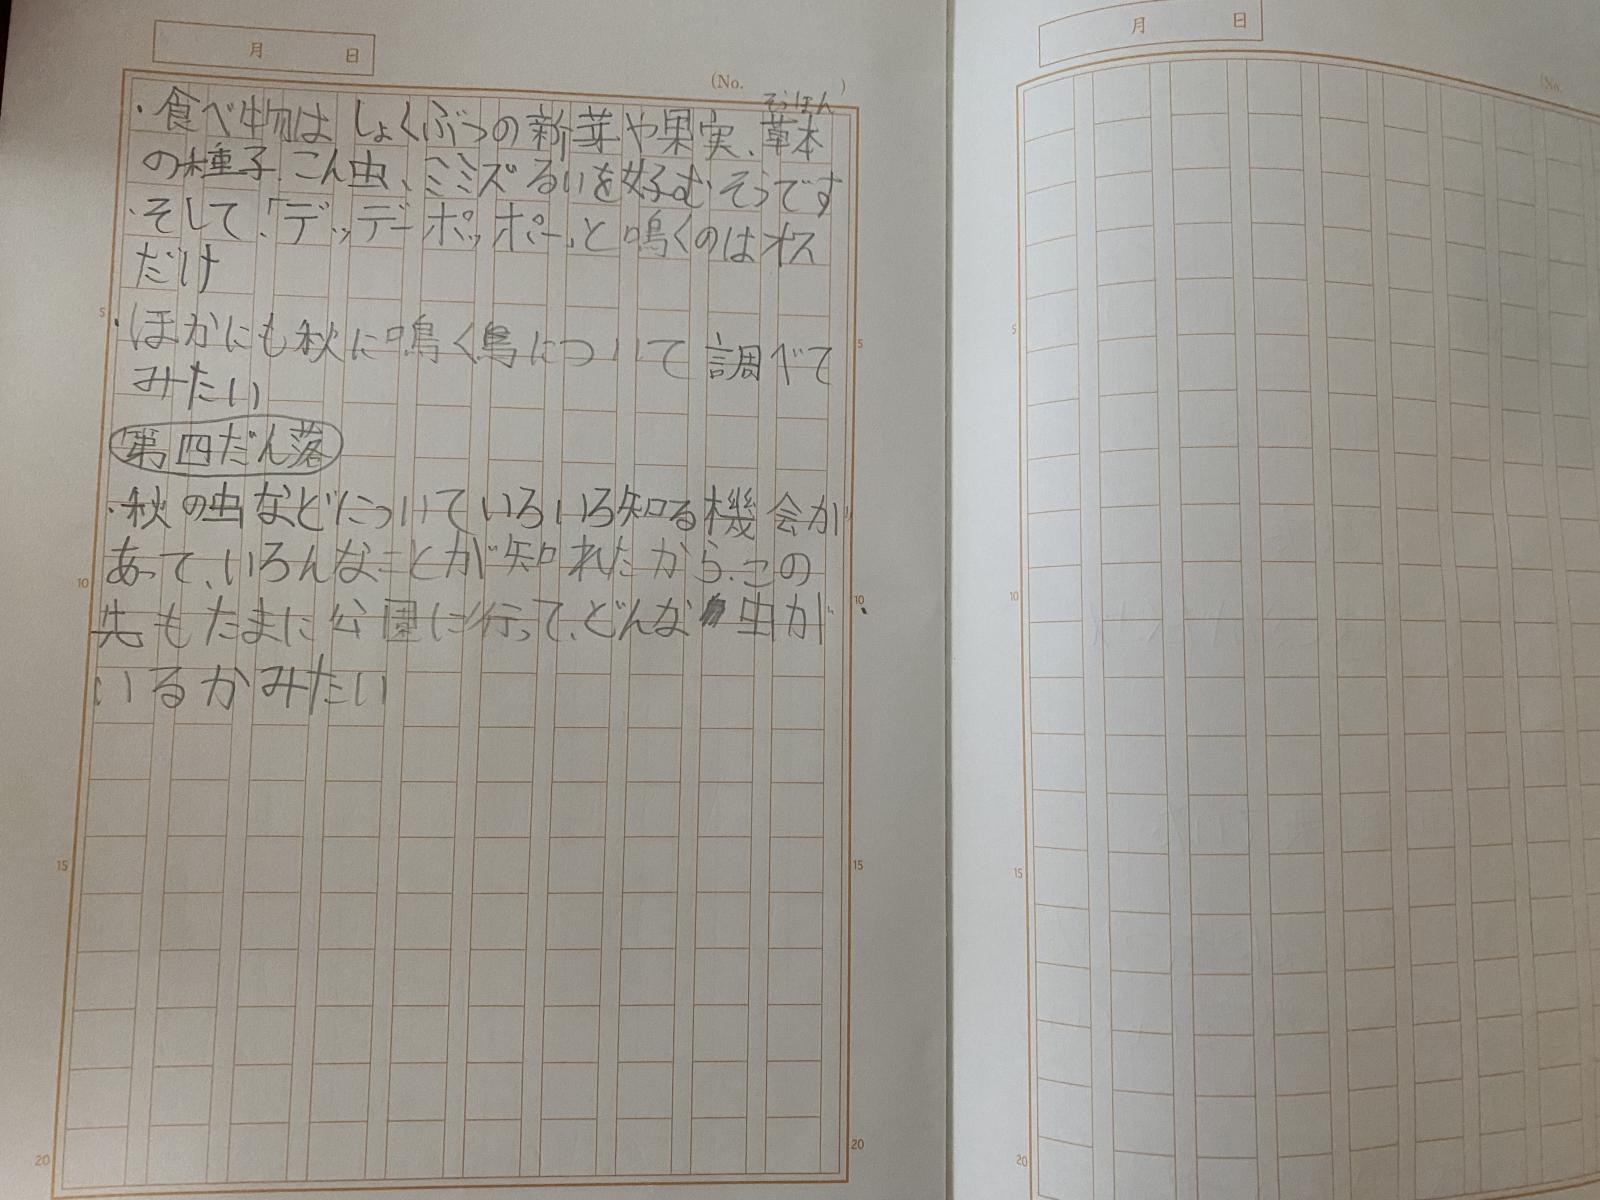 月 日
(No. )
そうほん
・食べ物はしょくぶつの新芽や果実、草本
の種子、こん虫、ミミズるいを好むそうです
・そして、「デッデーポッポー」と鳴くのはオス
だけ
・ほかにも秋に鳴く鳥について調べて
みたい
第四だん落
・秋の虫などについていろいろ知る機会が
あって、いろんなことが知れたから、この
先もたまに公園に行って、どんな虫が
いるかみたい
5
10
15
20
5
10
15
20
月 日
(No.
5
10
15
20